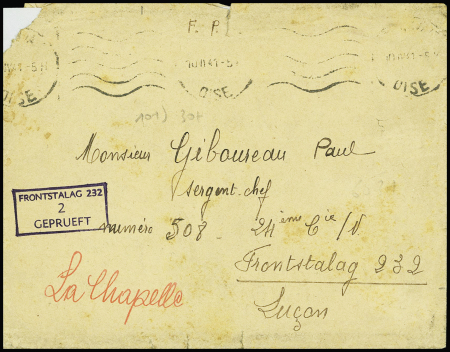 F. P.
10 II 41 - 5 H
OISE OISE OISE
101) 304
Monsieur Giboureau Paul
sergent.chef
FRONTSTALAG 232
2
GEPRUEFT
numéro 508 24ème Cie /N
Frontstalag 232
La Chapelle
Luçon